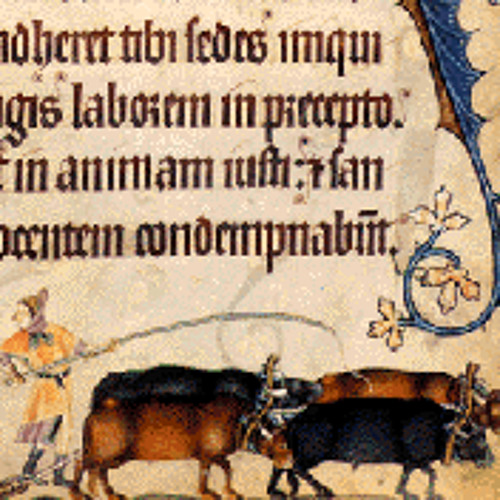 adheret tibi sedes iniqui
gis laborem in precepto.
t in animam iusti: ⁊ san
ocentem condempnabūt.